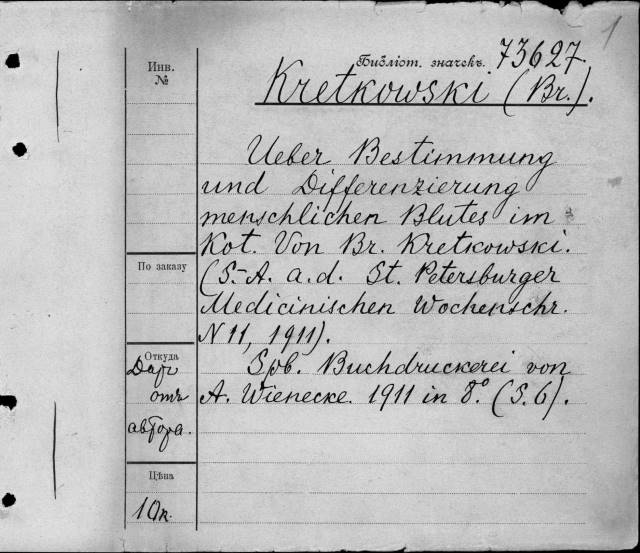 1
Библіот. значекъ. 73627
Инв.
№
Kretkowski (Br.).
Ueber Bestimmung
und Differenzierung
menschlichen Blutes im
Kot. Von Br. Kretkowski.
(S.-A. a. d. St. Petersburger
Medicinischen Wochenschr.
N 11, 1911).
Spb. Buchdruckerei von
A. Wienecke. 1911 in 8º. (S. 6).
По заказу
Откуда
Даръ
отъ
автора.
Цѣна
10к.